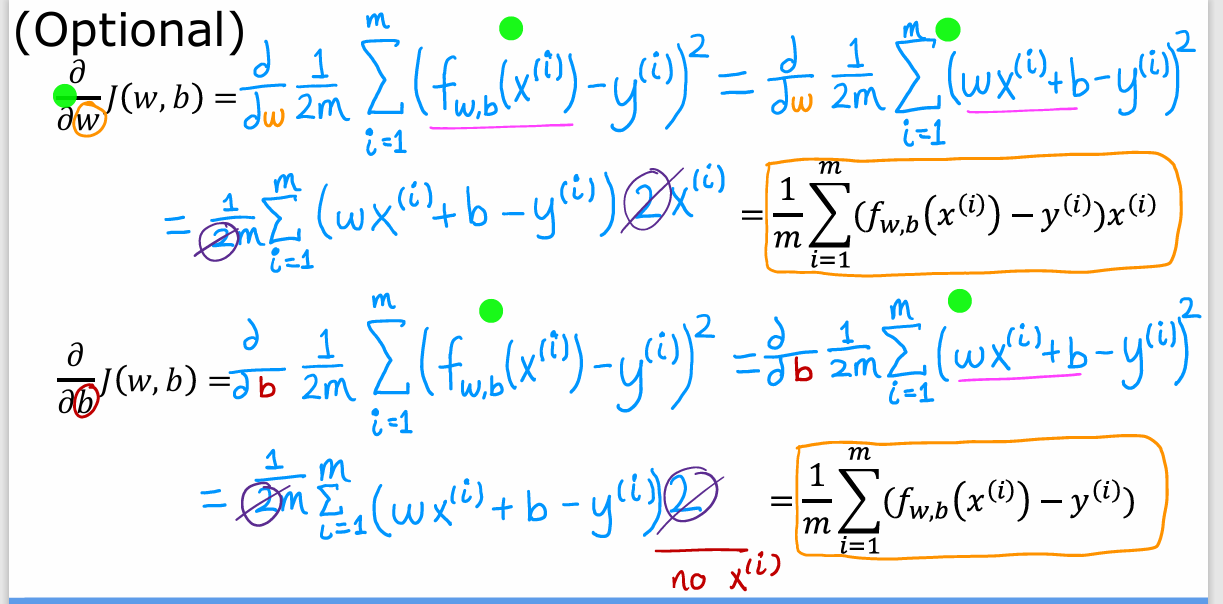 (Optional)
∂/∂w J(w, b) = d/dw 1/2m ∑_{i=1}^{m} (f_{w,b}(x^{(i)}) − y^{(i)})^2 = d/dw 1/2m ∑_{i=1}^{m} (wx^{(i)} + b − y^{(i)})^2
= 1/2m ∑_{i=1}^{m} (wx^{(i)} + b − y^{(i)}) 2x^{(i)} = 1/m ∑_{i=1}^{m} (f_{w,b}(x^{(i)}) − y^{(i)})x^{(i)}
∂/∂b J(w, b) = ∂/∂b 1/2m ∑_{i=1}^{m} (f_{w,b}(x^{(i)}) − y^{(i)})^2 = ∂/∂b 1/2m ∑_{i=1}^{m} (wx^{(i)} + b − y^{(i)})^2
= 1/2m ∑_{i=1}^{m} (wx^{(i)} + b − y^{(i)}) 2 = 1/m ∑_{i=1}^{m} (f_{w,b}(x^{(i)}) − y^{(i)})
no x^{(i)}